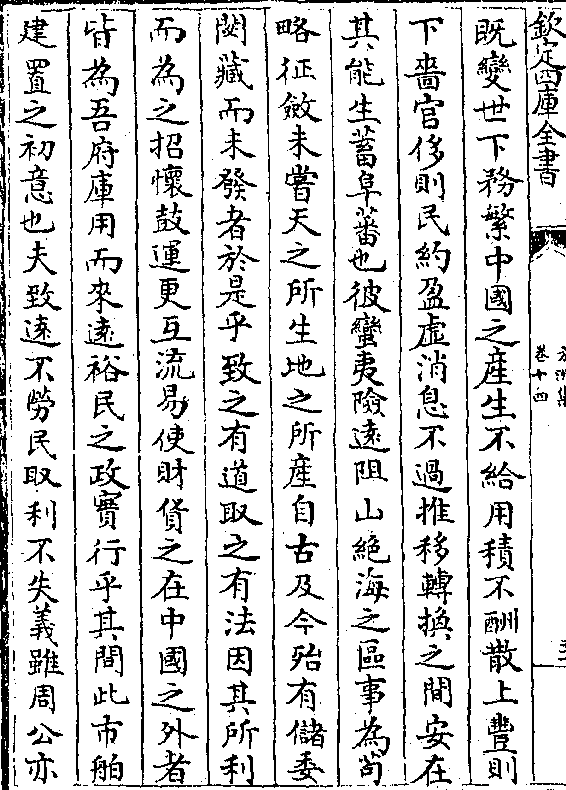 欽定四庫全書
卷十四
既變世下務繁中國之產生不給用積不酬散上豐則
下嗇官侈則民約盈虛消息不過推移轉換之間安在
其能生蓄阜蕃也彼蠻夷險遠阻山絶海之區事為茍
略征斂未嘗天之所生地之所產自古及今殆有儲委
閟藏而未發者於是乎致之有道取之有法因其所利
而為之招懷鼓運更互流易使財貨之在中國之外者
皆為吾府庫用而來逺裕民之政實行乎其間此市舶
建置之初意也夫致逺不勞民取利不失義雖周公亦